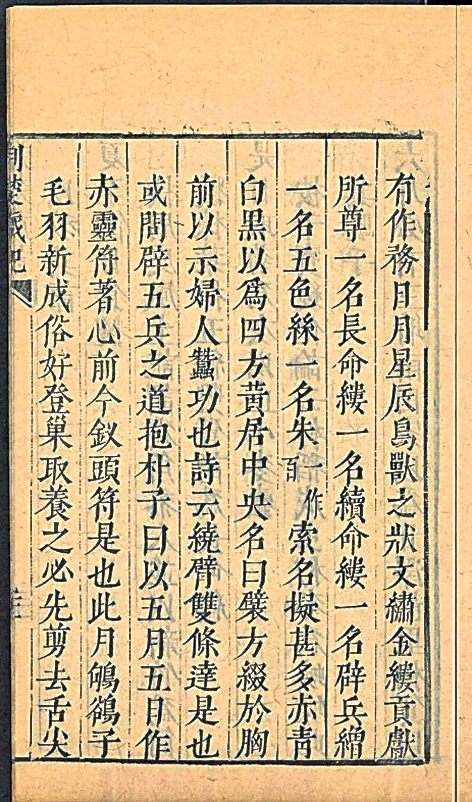 有作務日月星辰鳥獸之狀文繡金縷貢獻
所尊一名長命縷一名續命縷一名辟兵繒
一名五色絲一名朱一作百索名擬甚多赤青
白黑以爲四方黃居中央名曰襞方綴於胸
前以示婦人蠶功也詩云繞臂雙條達是也
或問辟五兵之道抱朴子曰以五月五日作
赤靈符著心前今釵頭符是也此月鴝鵒子
毛羽新成俗好登巢取養之必先剪去舌尖